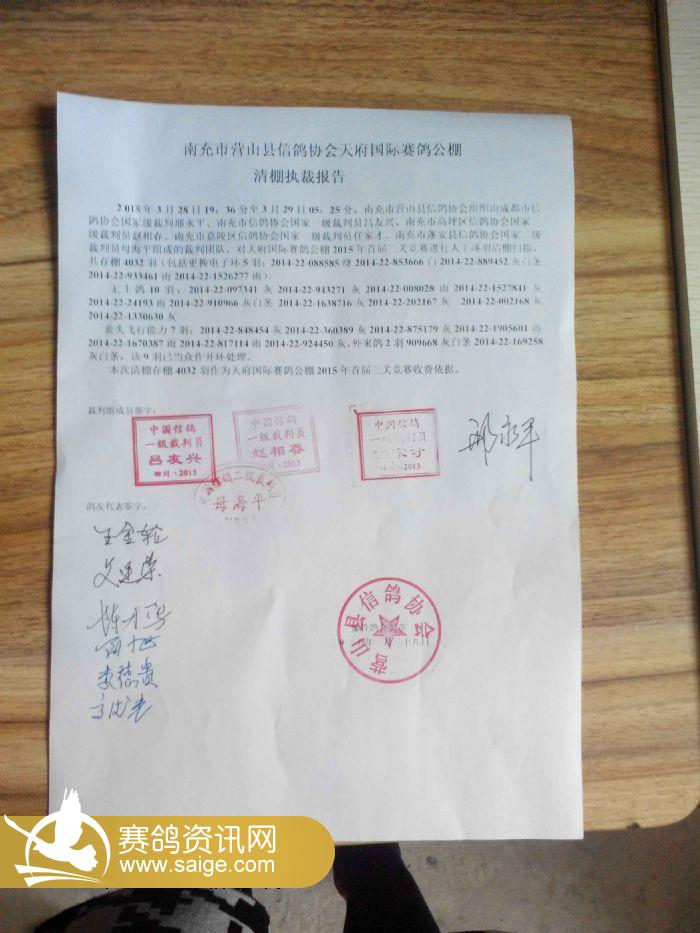 南充市营山县信鸽协会天府国际赛鸽公棚
清棚执裁报告
2015年3月28日19：36分至3月29日05：25分，南充市营山县信鸽协会组织由成都市信
鸽协会国家级裁判邢永平、南充市信鸽协会国家一级裁判员吕友兴、南充市高坪区信鸽协会国家一
级裁判员赵相春、南充市嘉陵区信鸽协会国家一级裁判员任家才、南充市蓬安县信鸽协会国家二级
裁判员母海平组成的裁判团队，对天府国际赛鸽公棚2015年首届三关竞赛进行人工逐羽清棚扫描，
共存棚4032羽（包括更换电子环5羽：2014-22-088585绛 2014-22-853666 白 2014-22-889452灰白条
2014-22-933461雨 2014-22-1526277雨）。
无主鸽10羽：2014-22-097341灰 2014-22-943271灰 2014-22-008028雨 2014-22-1527841灰
2014-22-24193雨 2014-22-910966灰白条 2014-22-1638716灰 2014-22-202167灰 2014-22-002168灰
2014-22-1330630灰
丧失飞行能力7羽：2014-22-848454灰 2014-22-360389灰 2014-22-875179灰 2014-22-1905601雨
2014-22-1670387雨 2014-22-817114雨 2014-22-924450灰，外来鸽2羽 909668灰白条 2014-22-169258
灰白条，该9羽已当众作开环处理。
本次清棚存棚4032羽作为天府国际赛鸽公棚2015年首届三关竞赛收费依据。
裁判组成员签字：
中国信鸽
一级裁判员
吕友兴
四川·2013
中国信鸽
一级裁判员
赵相春
四川·2013
中国信鸽
一级裁判员
四川·2013
邢永平
中国信鸽二级裁判员
母海平
鸽友代表签字：
王金轮
李德贵
营山县信鸽协会
赛鸽资讯网
www.saige.com